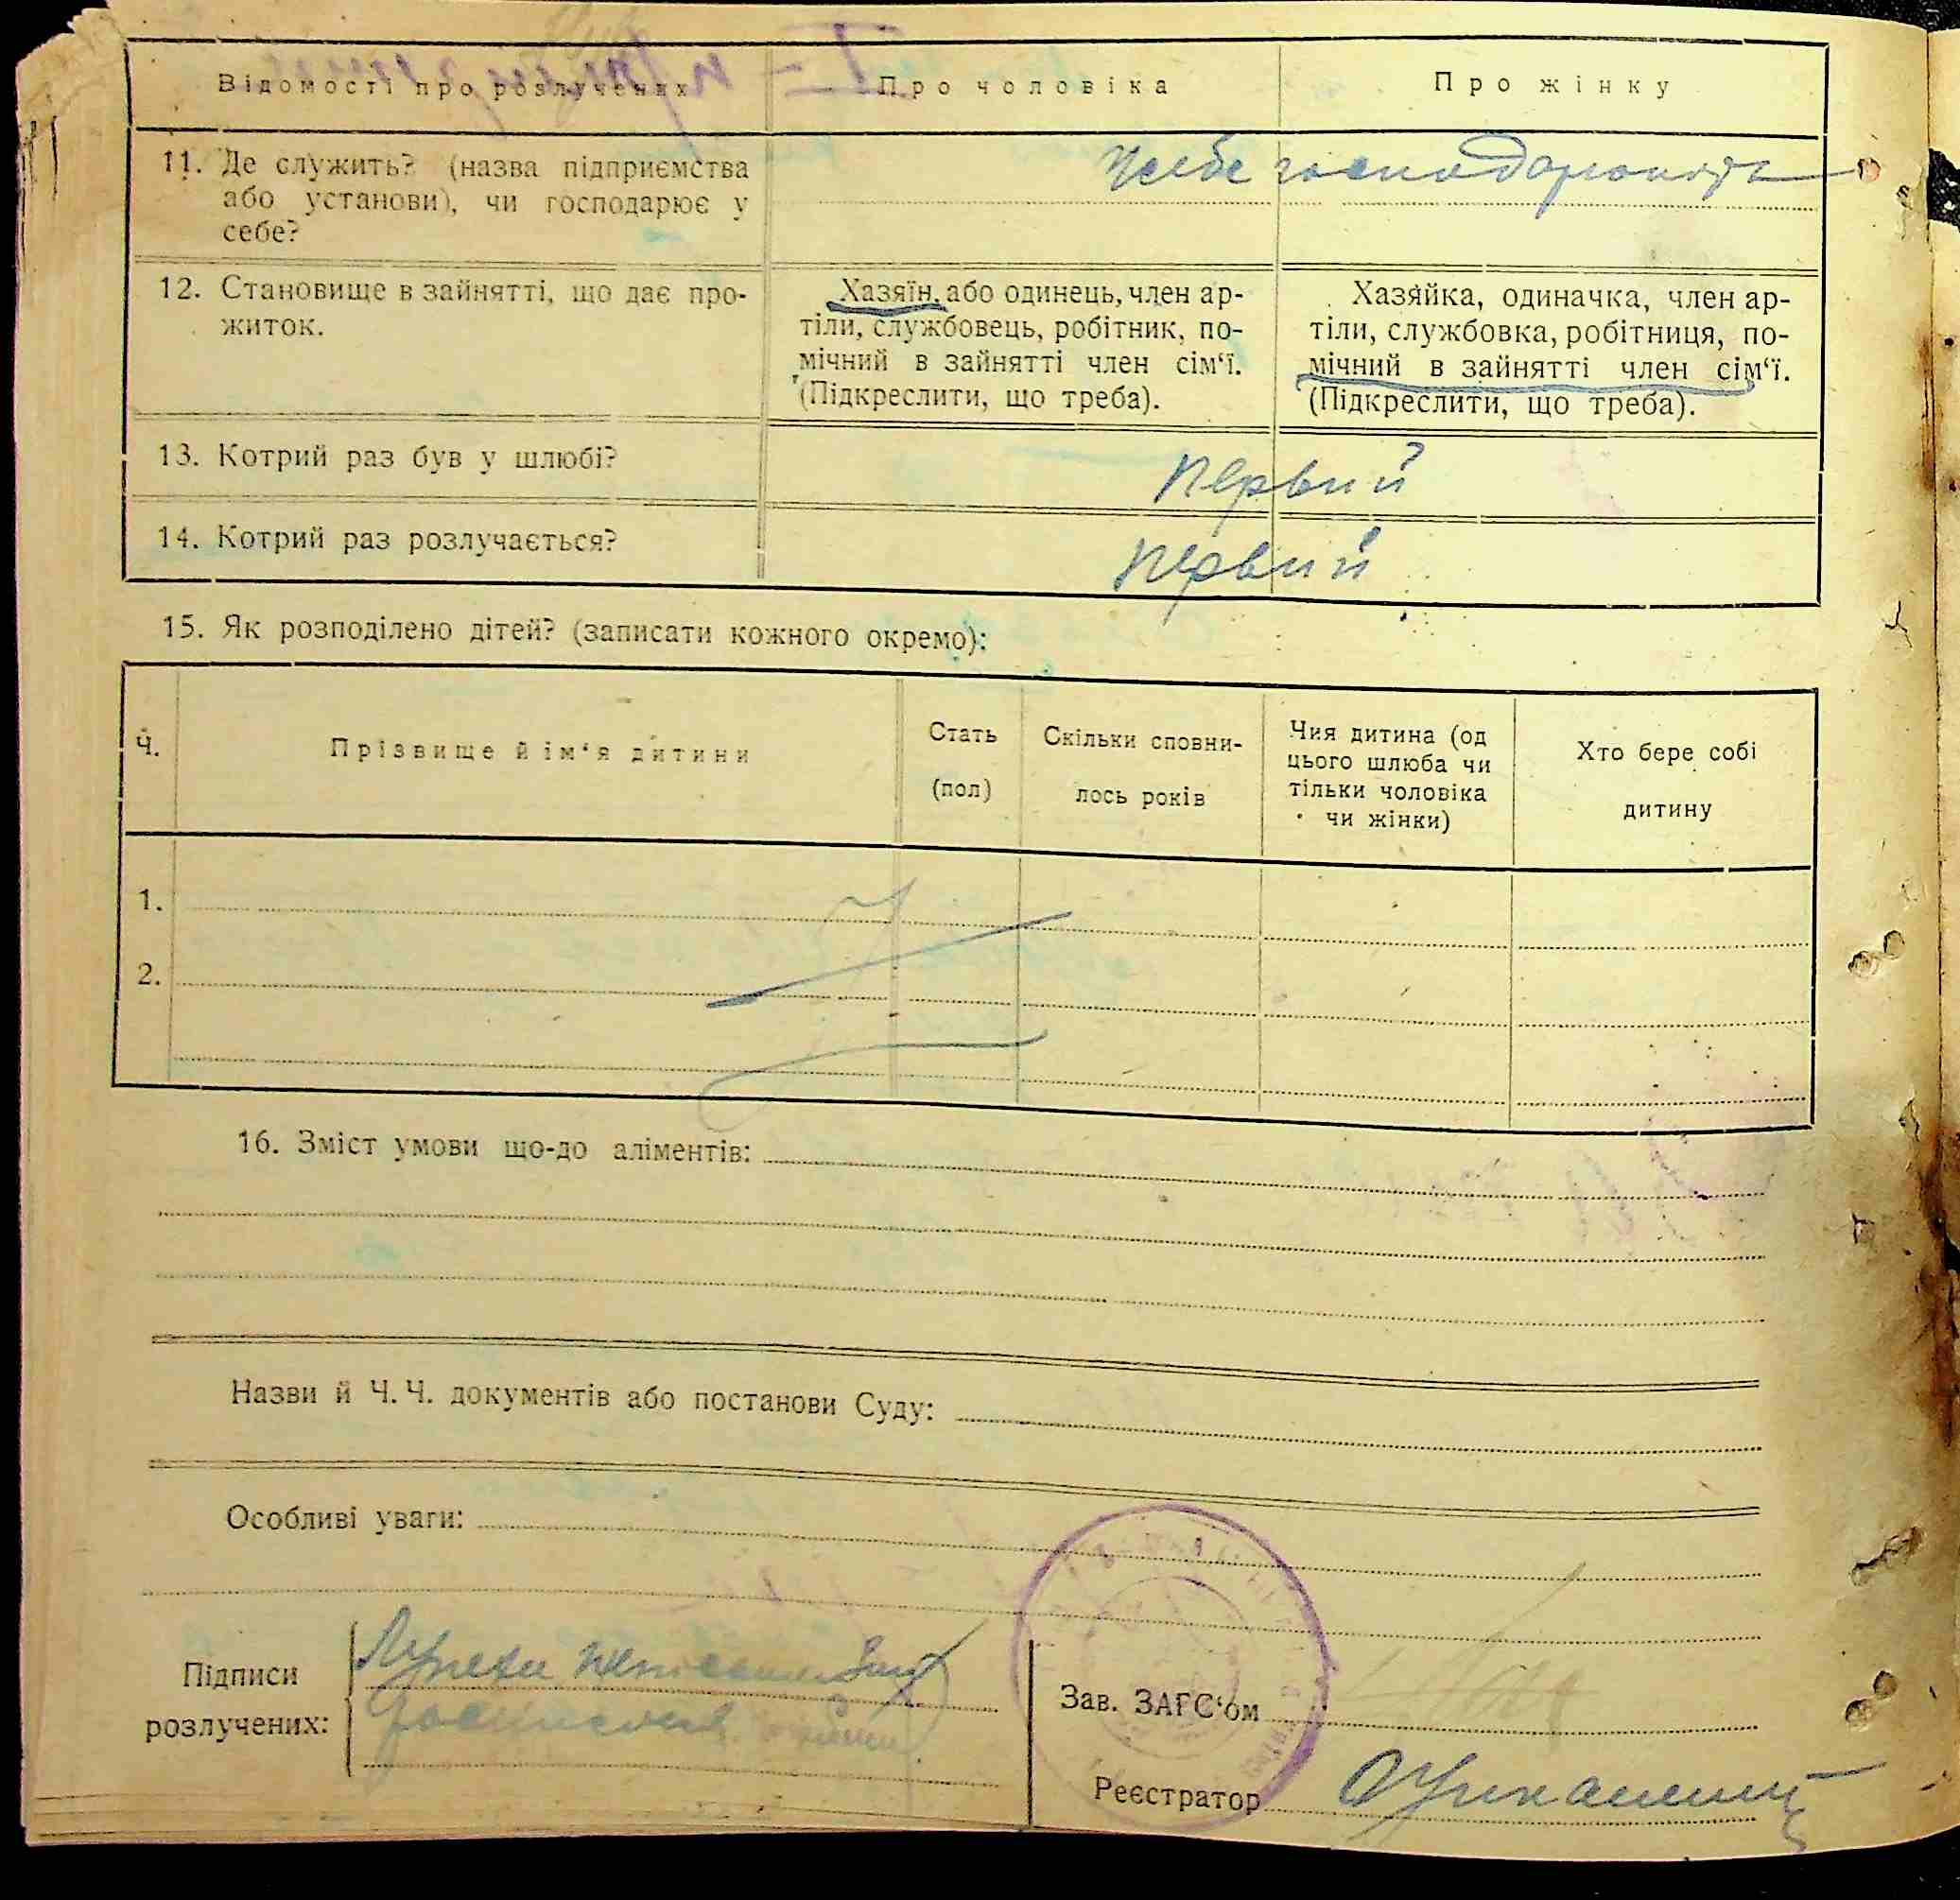 Відомості про розлучених
Про чоловіка
Про жінку
11. Де служить? (назва підприємства
або установи), чи господарює у
себе?
У себе
12. Становище в зайнятті, що дає про-
житок.
Хазяїн, або одинець, член ар-
тіли, службовець, робітник, по-
мічний в зайнятті член сім‘ї.
(Підкреслити, що треба).
Хазяйка, одиначка, член ар-
тіли, службовка, робітниця, по-
мічний в зайнятті член сім‘ї.
(Підкреслити, що треба).
13. Котрий раз був у шлюбі?
первий
14. Котрий раз розлучається?
первий
15. Як розподілено дітей? (записати кожного окремо):
Ч.
Прізвище й ім‘я дитини
Стать
(пол)
Скільки сповни-
лось років
Чия дитина (од
цього шлюба чи
тільки чоловіка
чи жінки)
Хто бере собі
дитину
1.
2.
16. Зміст умови що-до аліментів:
Назви й Ч. Ч. документів або постанови Суду:
Особливі уваги:
Підписи
розлучених:
Зав. ЗАГС‘ом
Реєстратор